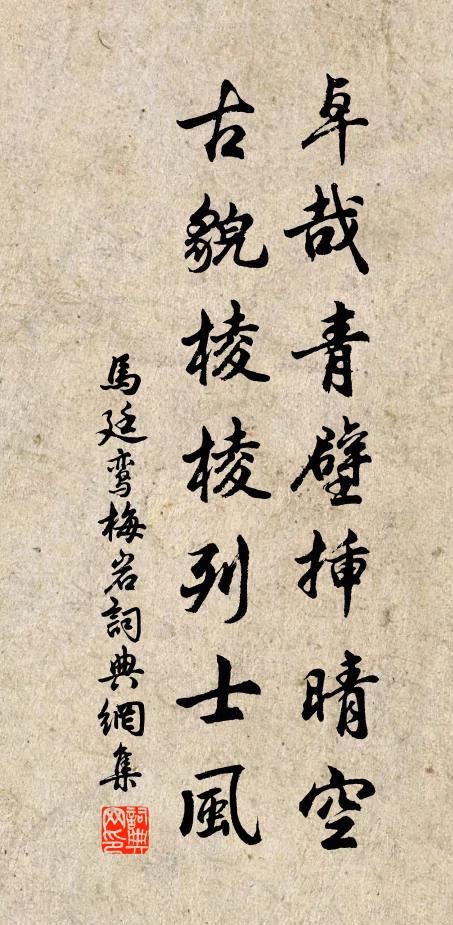 卓哉青壁挿晴空
古貌棱棱列士風
馬廷鸞梅岩詞典網集
詞典网印